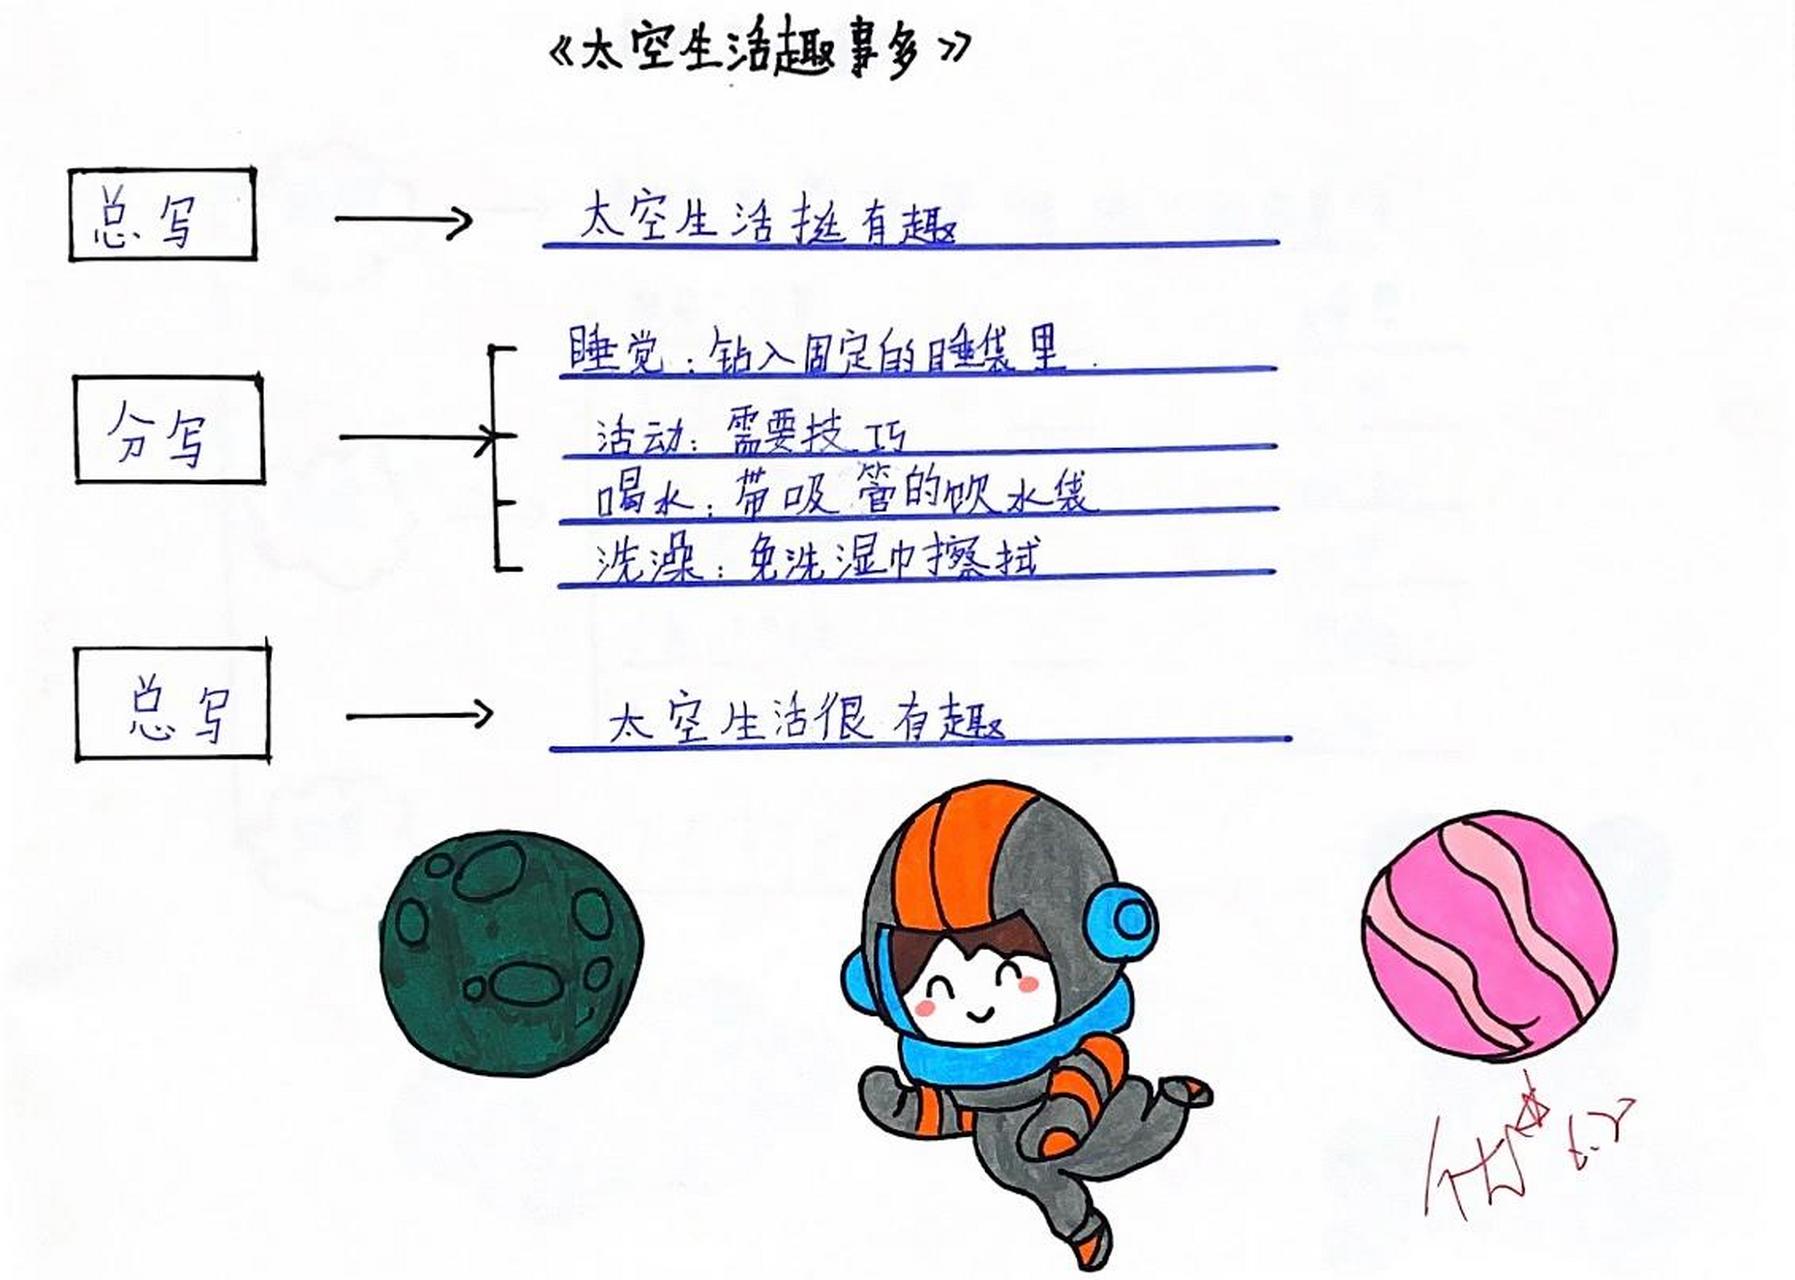 《太空生活趣事多》
总写 太空生活挺有趣
睡觉：钻入固定的睡袋里.
分写 活动：需要技巧
喝水：带吸管的饮水袋
洗澡：免洗湿巾擦拭
总写 太空生活很有趣
优 6.2